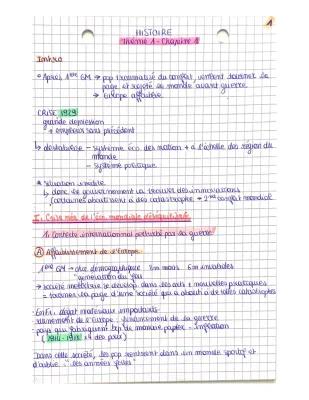 1
HISTOIRE
Thème 1 - Chapitre 1
Intro
• Après 1ère GM → pop traumatisé du conflit, veulent tourner la
page et rejeté le monde avant guerre
→ Europe affaiblie
CRISE 1929
grande dépression
→ ampleur sans précédent
↳ déstabilise - système éco des nation + à l'échelle des région du
monde
- système politique
• Situation inédite
↳ donc le gouvernement va trouver des innovations
(certaines aboutiront à des catastrophe → 2nd conflit mondial
I. Crise née de l'éco mondiale déséquilibrée
1. Contexte international perturbé par la guerre
A Affaiblissement de l'Europe
1ère GM → choc démographique 8m morts 6m invalides
"génération du feu"
→ société mobilisée se develop. dans des arts + nouvelles pratiques
= tourner la page d'une société qui a abouti à de telles catastrophes
En Fr : dégat matériaux importants
- de l'Europe : financement de la guerre
- pays qui fabriquent trop de monnaie papier - Inflation
(1914 - 1918 x4 des prix)
Dans cette société, les pop rentrent dans un monde sportif et
d'oublie "les années folles"